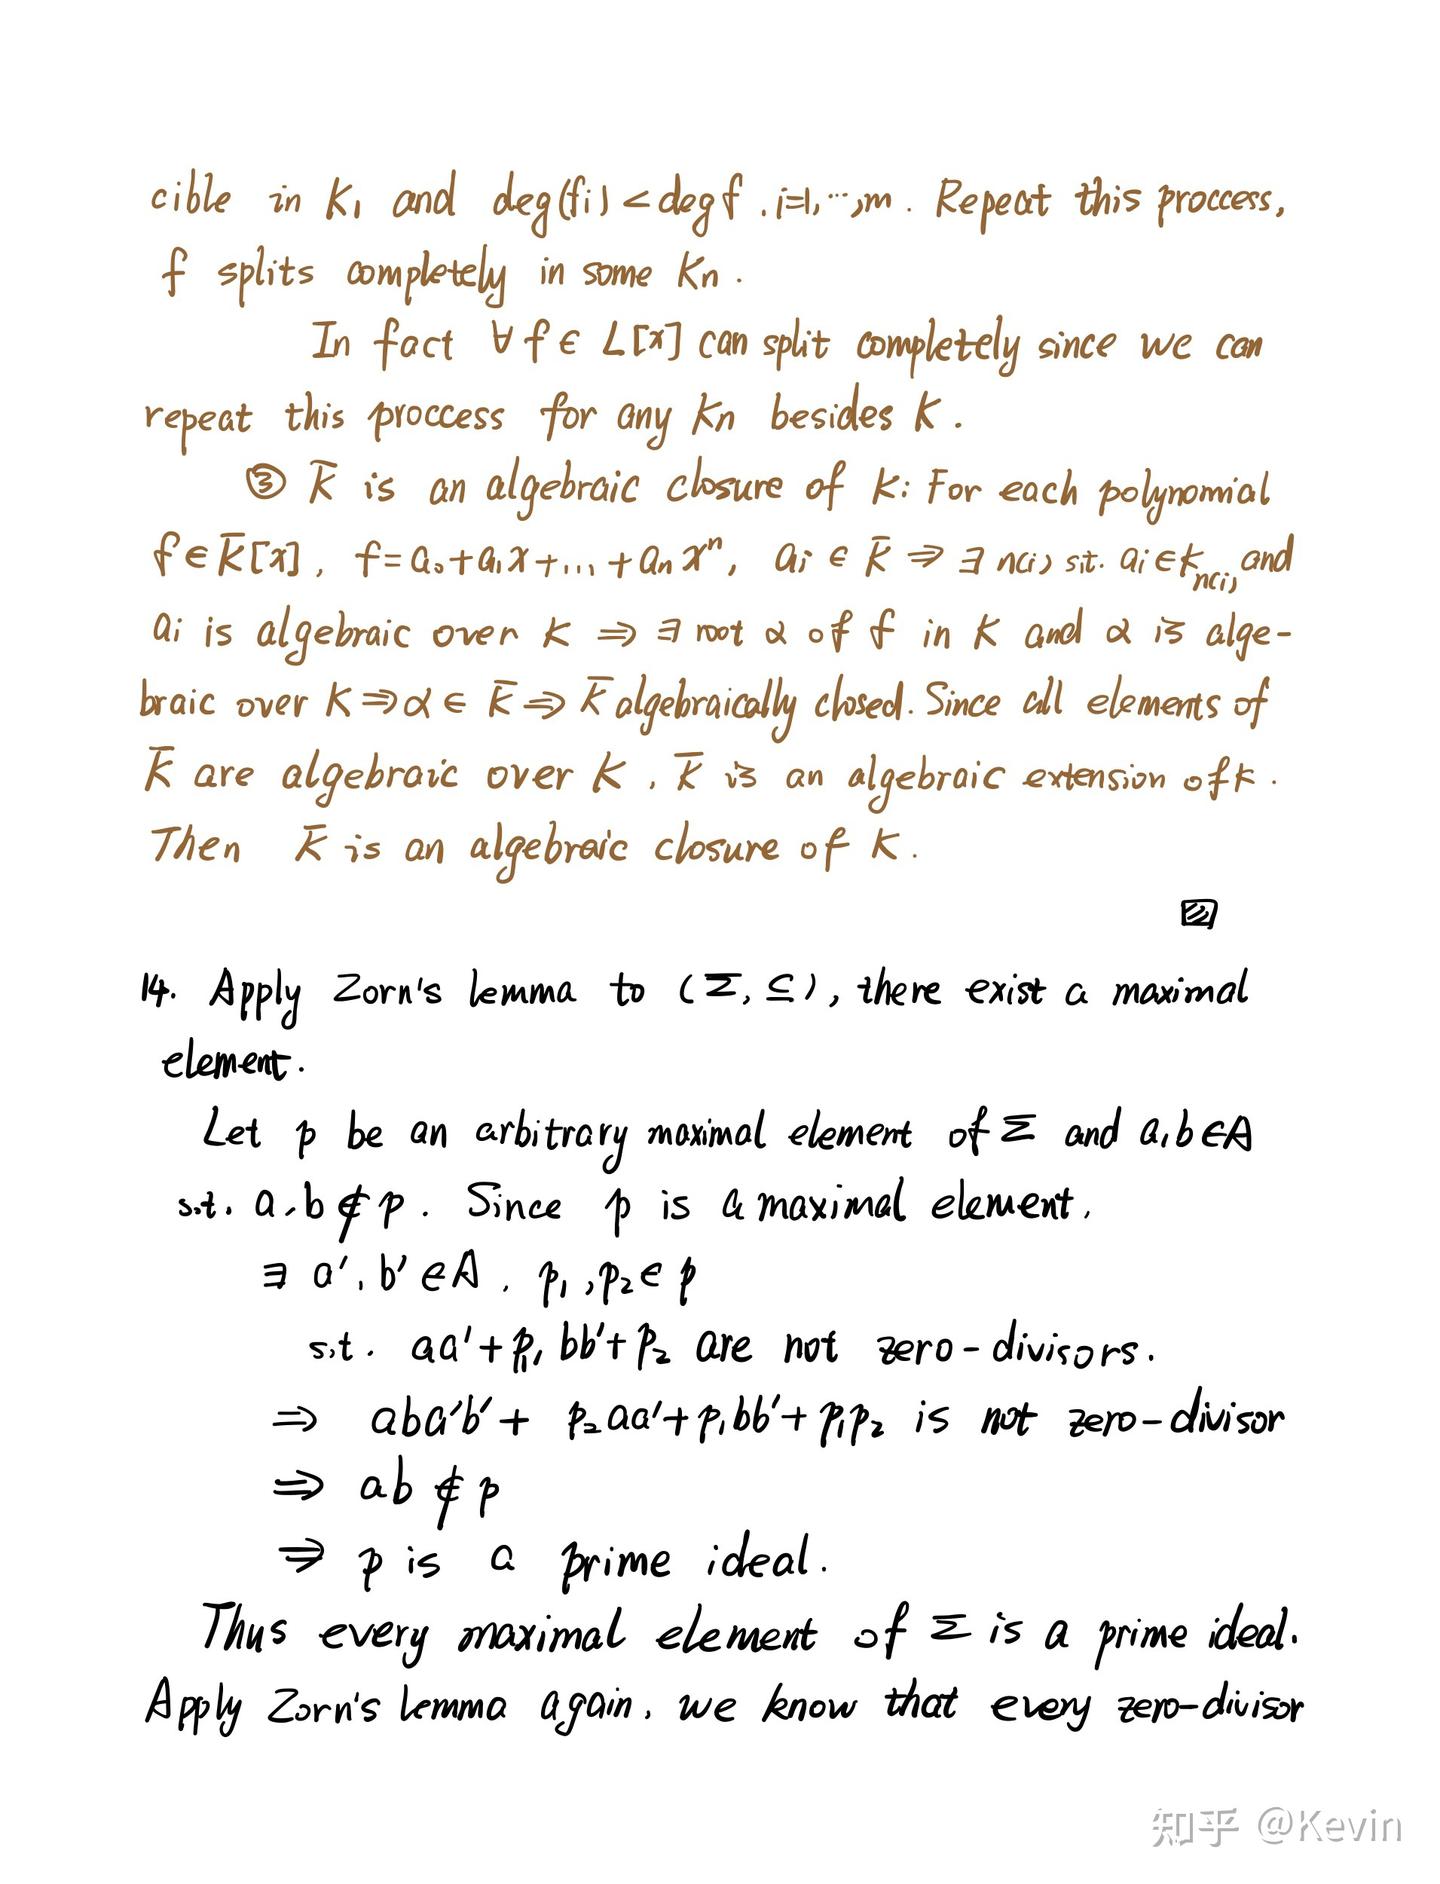 cible in K₁ and deg(fi) < deg f, i=1, ⋯, m. Repeat this proccess,
f splits completely in some Kn.
In fact ∀ f ∈ L[x] can split completely since we can
repeat this proccess for any Kn besides K.
③ K̅ is an algebraic closure of K: For each polynomial
f ∈ K̅[x], f = a₀ + a₁x + ... + aₙxⁿ, ai ∈ K̅ ⇒ ∃ n(i) s.t. ai ∈ K_n(i), and
ai is algebraic over K ⇒ ∃ root α of f in K and α is alge-
braic over K ⇒ α ∈ K̅ ⇒ K̅ algebraically closed. Since all elements of
K̅ are algebraic over K, K̅ is an algebraic extension of K.
Then K̅ is an algebraic closure of K.
14. Apply Zorn's lemma to (Σ, ⊆), there exist a maximal
element.
Let p be an arbitrary maximal element of Σ and a, b ∈ A
s.t. a, b ∉ p. Since p is a maximal element,
∃ a', b' ∈ A, p₁, p₂ ∈ p
s.t. aa' + p₁, bb' + p₂ are not zero-divisors.
⇒ aba'b' + p₂aa' + p₁bb' + p₁p₂ is not zero-divisor
⇒ ab ∉ p
⇒ p is a prime ideal.
Thus every maximal element of Σ is a prime ideal.
Apply Zorn's lemma again, we know that every zero-divisor
知乎 @Kevin